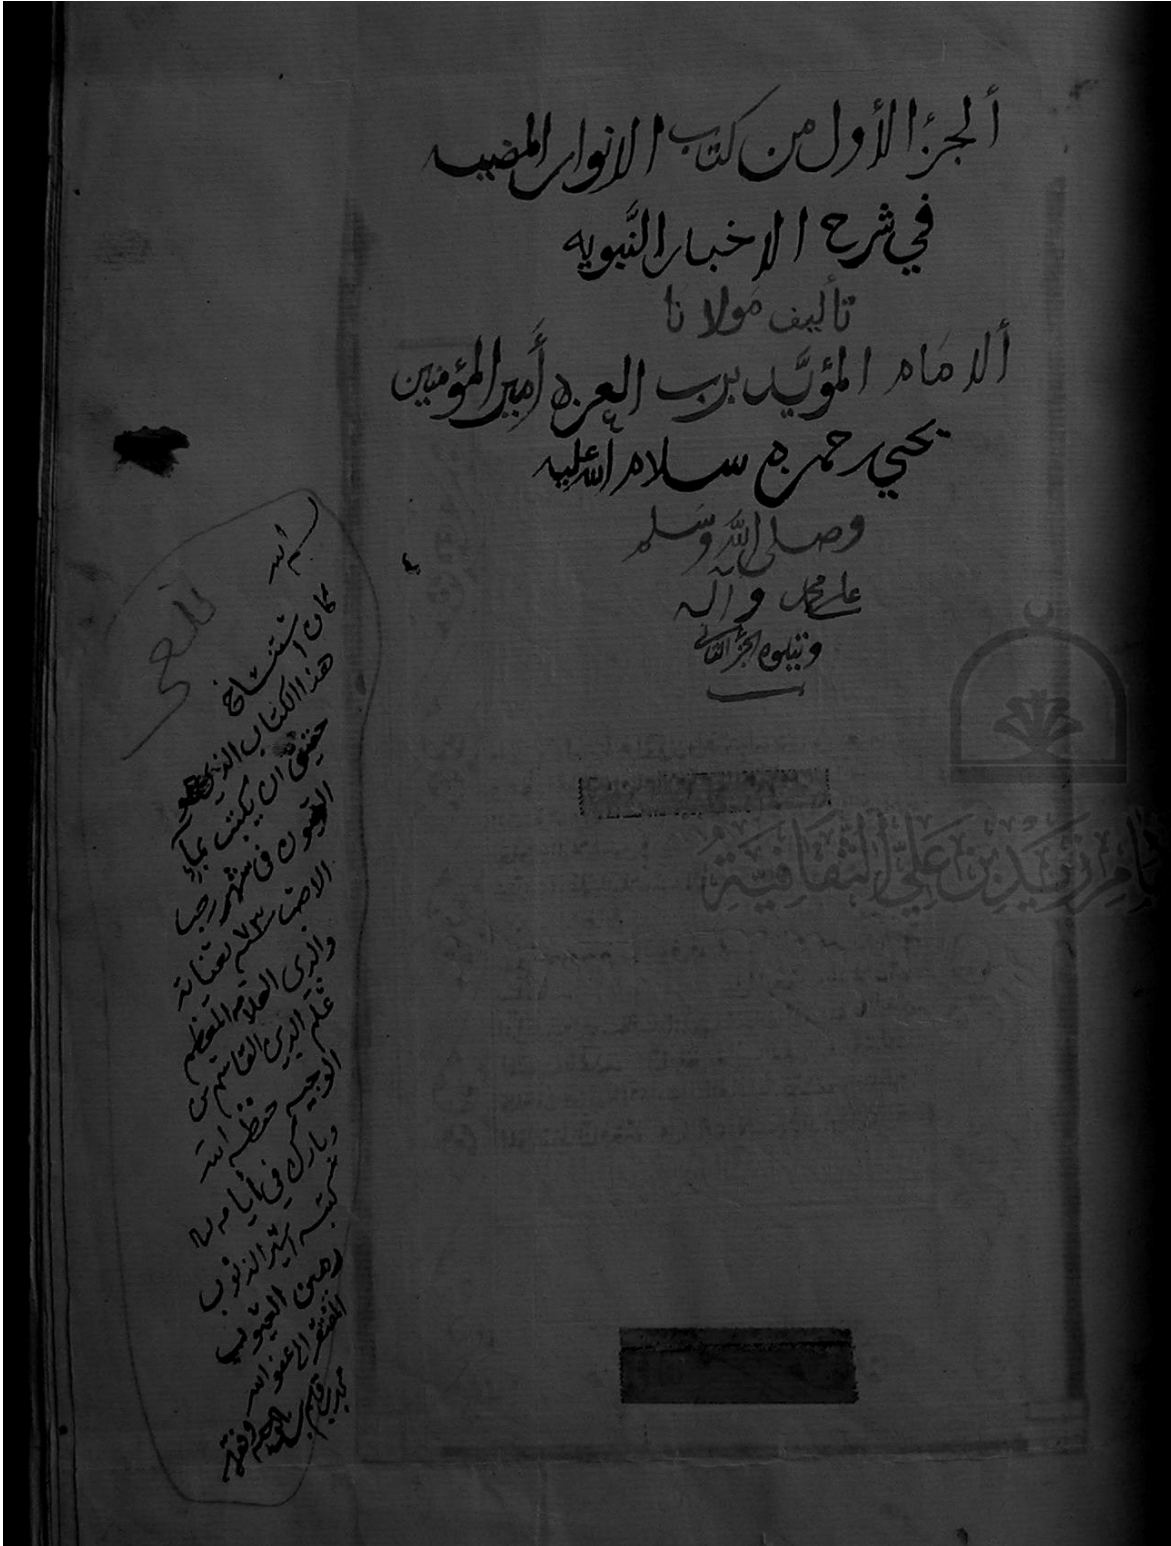 ألجزء الأول من كتاب الانوار المضييه
في شرح الاخبار النَّبويه
تأليف مولانا
ألامام المؤيَّد برب العزه أمير المؤمنين
يحيى حمزه سلام الله عليه
وصلى الله وسلم
على محمد وآله
ويتلوه الجزء الثاني
بسم الله
كان استنساخ
هذا الكتاب الذي هو
حقيق ان يكتب بماء
العيون في شهر رجب
الاصب سنة بعناية
والدي العلامة المعظم
علم الدين القاسم بن
الوجيه حفظه الله
وبارك في أيامه
كتبه اسير الذنوب
رهين العيوب
المفتقر الى عفو الله
مام زيد بن علي الثقافية